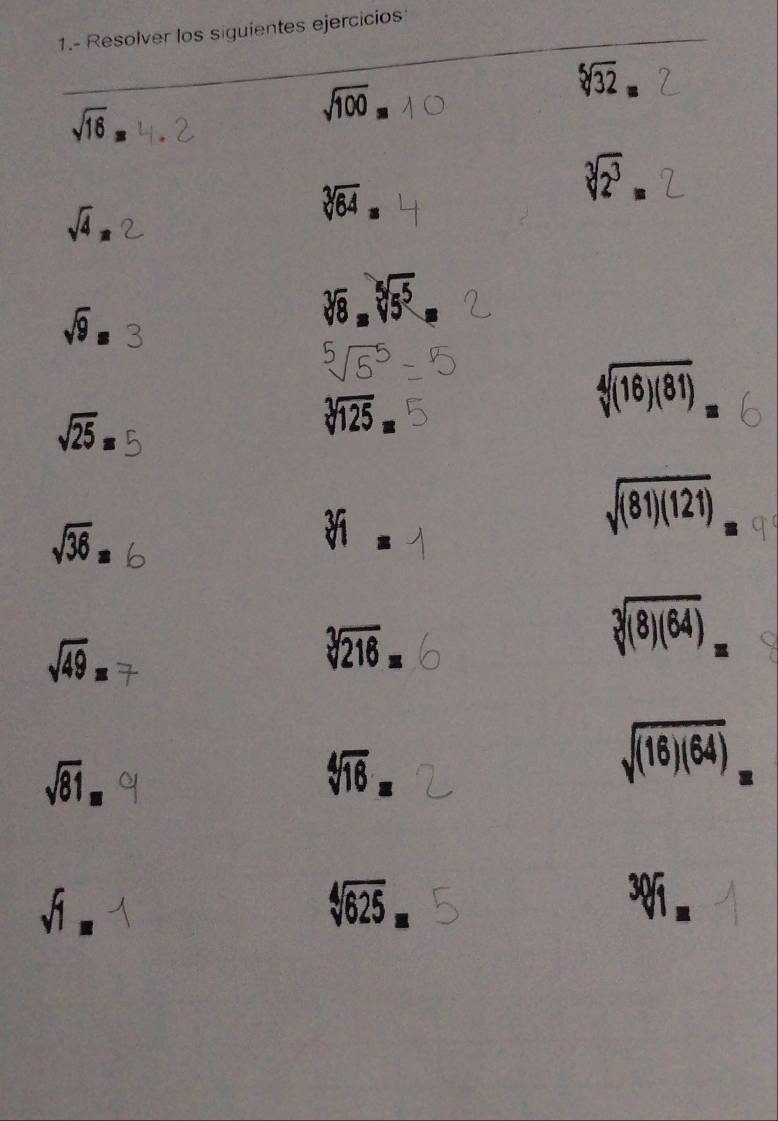 1.- Resolver los siguientes ejercicios:
√16 = 4.2
√100 = 10
⁵√32 = 2
√4 = 2
³√64 = 4
³√2³ = 2
√9 = 3
³√8 = ⁵√5⁵ = 2
⁵√5⁵ = 5
√25 = 5
³√125 = 5
⁴√(16)(81) = 6
√36 = 6
³√1 = 1
√(81)(121) = 9
√49 = 7
³√216 = 6
³√(8)(64) = 8
√81 = 9
⁴√16 = 2
√(16)(64) =
√1 = 1
⁴√625 = 5
³⁰√1 = 1